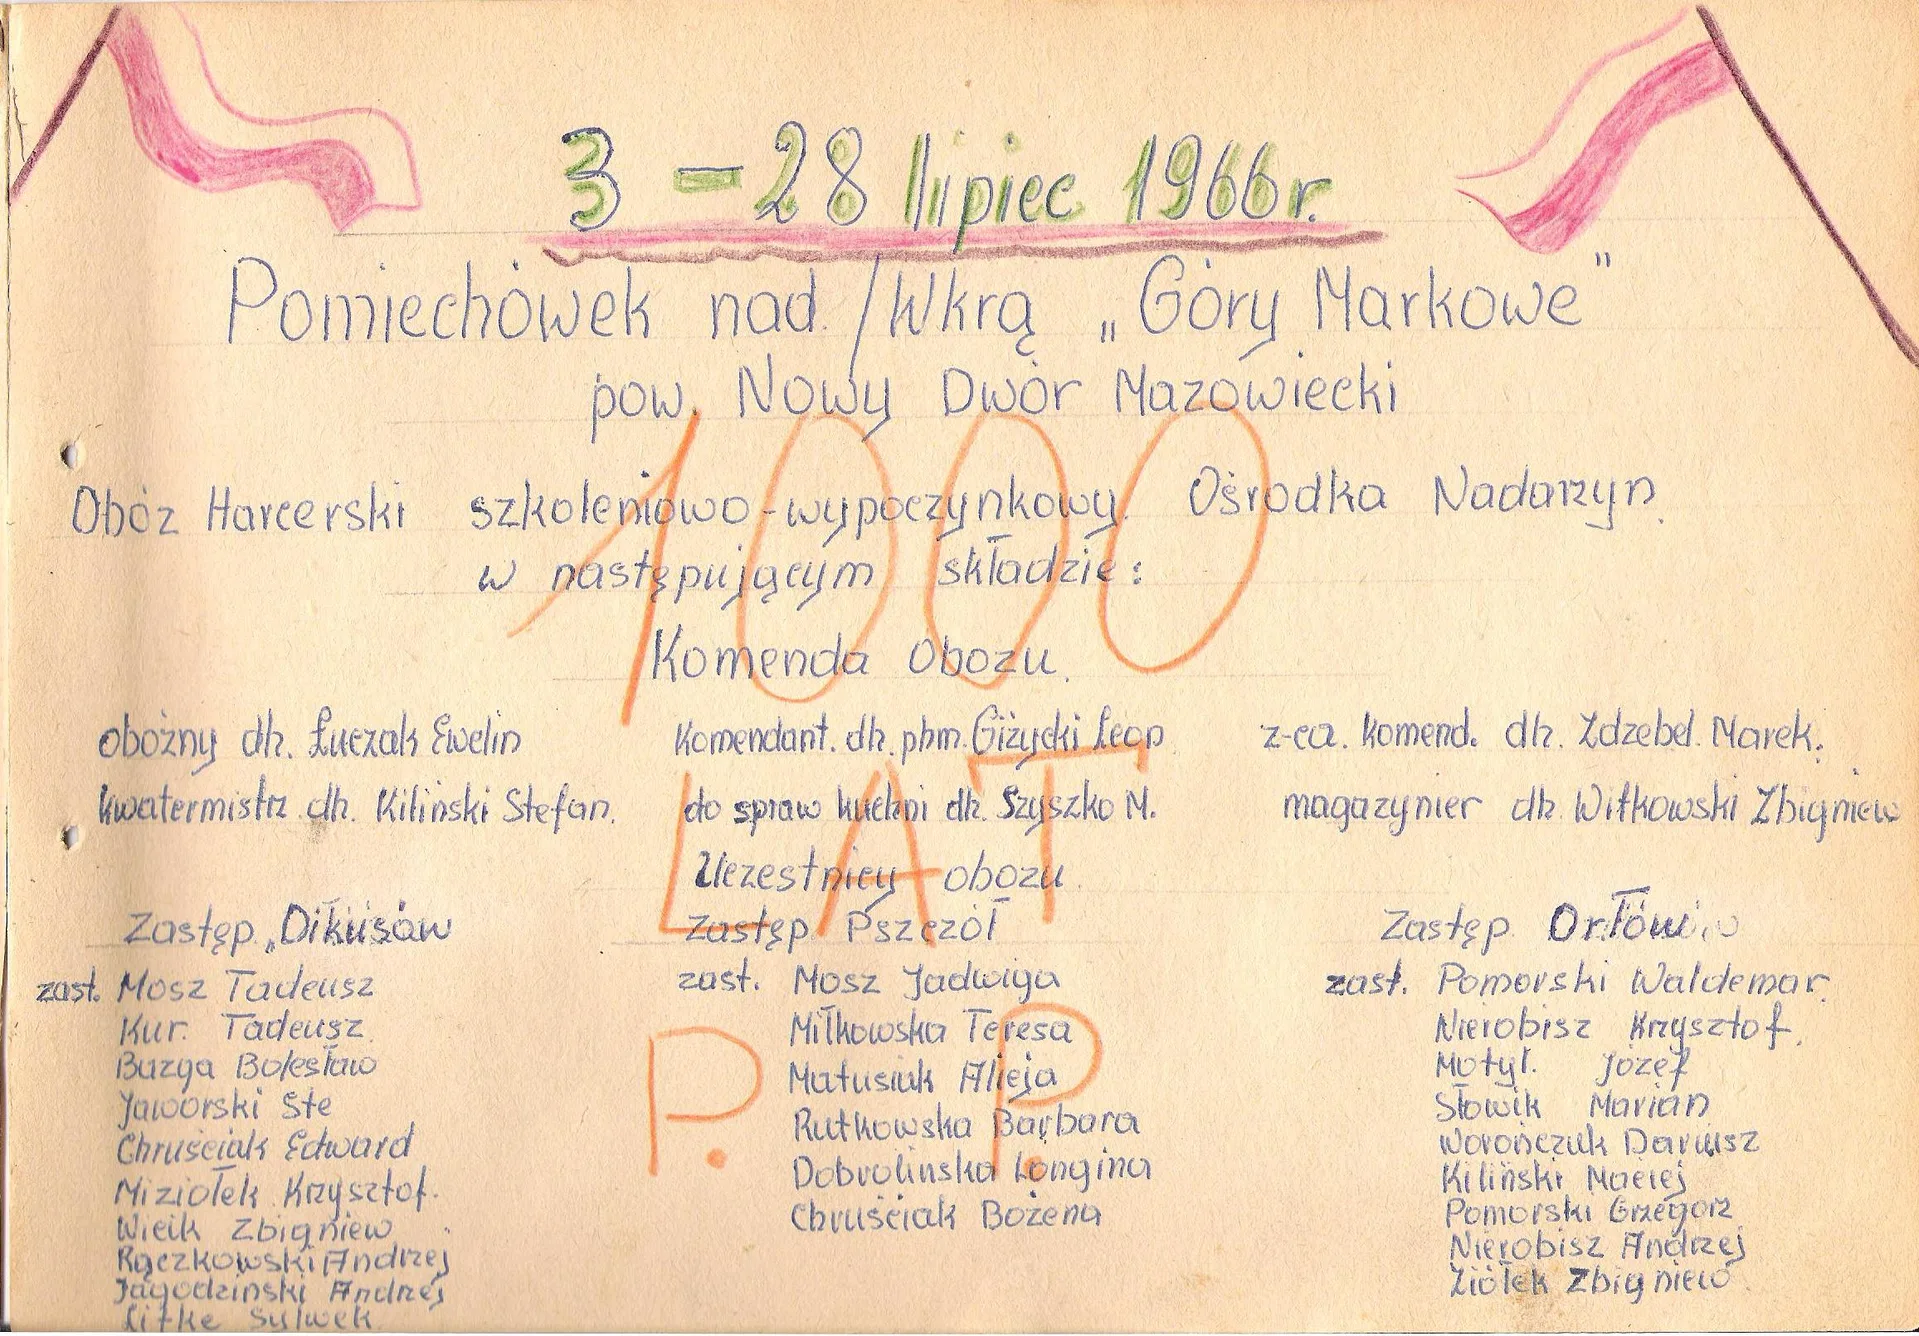 3 - 28 lipiec 1966r.
Pomiechówek nad /Wkrą „Góry Markowe"
pow. Nowy Dwór Mazowiecki
1000
Obóz Harcerski szkoleniowo-wypoczynkowy Ośrodka Nadarzyn.
w następującym składzie:
Komenda Obozu.
obożny dh. Łuczak Ewelin
Komendant. dh. phm. Giżycki Leop
z-ca. komend. dh. Zdzebel Marek.
kwatermistrz dh. Kiliński Stefan.
do spraw kuchni dh. Szyszko M.
magazynier dh. Witkowski Zbigniew
LAT
Uczestnicy obozu.
Zastęp „Dikusów
zast. Mosz Tadeusz
Kur. Tadeusz
Buzga Bolesław
Jaworski Ste
Chruściak Edward
Miziołek Krzysztof.
Wicik Zbigniew
Rączkowski Andrzej
Jagodziński Andrzej
Litke Sylwek
Zastęp Pszczół
zast. Mosz Jadwiga
Miłkowska Teresa
Matusiak Alicja
Rutkowska Barbara
Dobrolińska Longina
Chruściak Bożena
P. P.
Zastęp Orłów
zast. Pomorski Waldemar.
Nierobisz Krzysztof.
Motyl. Józef
Słowik Marian
Worończuk Dariusz
Kiliński Maciej
Pomorski Grzegorz
Nierobisz Andrzej
Ziółek Zbigniew